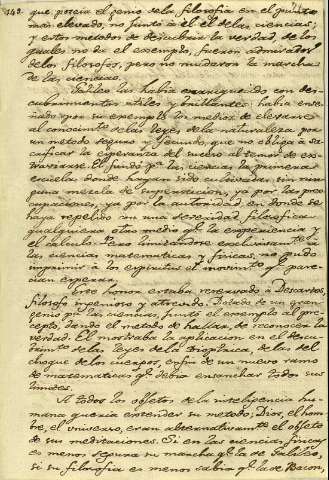 142.
que poseia el genio de la filosofia en el grado
mas elevado, no junto a el el de las ciencias;
y estos metodos de descubrir la verdad, de los
quales no da el exemplo, fueron admirados
de los filosofos, pero no mudaron la marcha
de las ciencias.
Galileo las habia enriquecido con des-
cubrimientos utiles y brillantes: habia ense-
ñado por su exemplo los medios de elevarse
al conocimto de las leyes de la naturaleza por
un metodo seguro y fecundo, que no obliga á sa-
crificar la esperanza del suceso al temor de es-
traviarse. El fundó pa las ciencias la primera
escuela donde hayan sido cultivadas sin nin-
guna mezcla de supersticion, ya por las preo-
cupaciones, ya por la autoridad; en donde se
haya repelido con una severidad filosofica
qualquiera otro medio qe la experiencia y
el calculo. Pero limitandose exclusivamte a
las ciencias matematicas y fisicas, no pudo
imprimir á los espiritus el movimto qe pare-
cian esperar.
Este honor estaba reservado á Descartes,
filosofo ingenioso y atrevido. Dotado de un gran
genio pa las ciencias, juntó el exemplo al pre-
cepto, dando el metodo de hallar, de reconocer la
verdad. El mostraba la aplicacion en el descu-
brimto de las leyes de la Dioptrica, de las del
choque de los cuerpos, enfin de un nuevo ramo
de matematicas qe debia ensanchar todos sus
limites.
A todos los objetos de la inteligencia hu-
mana queria extender su metodo; Dios, el hom-
bre, el universo, eran alternativamte el objeto
de sus meditaciones. Si en las ciencias fisicas
es menos segura su marcha qe la de Galileo,
si su filosofia es menos sabia qe la de Bacon,